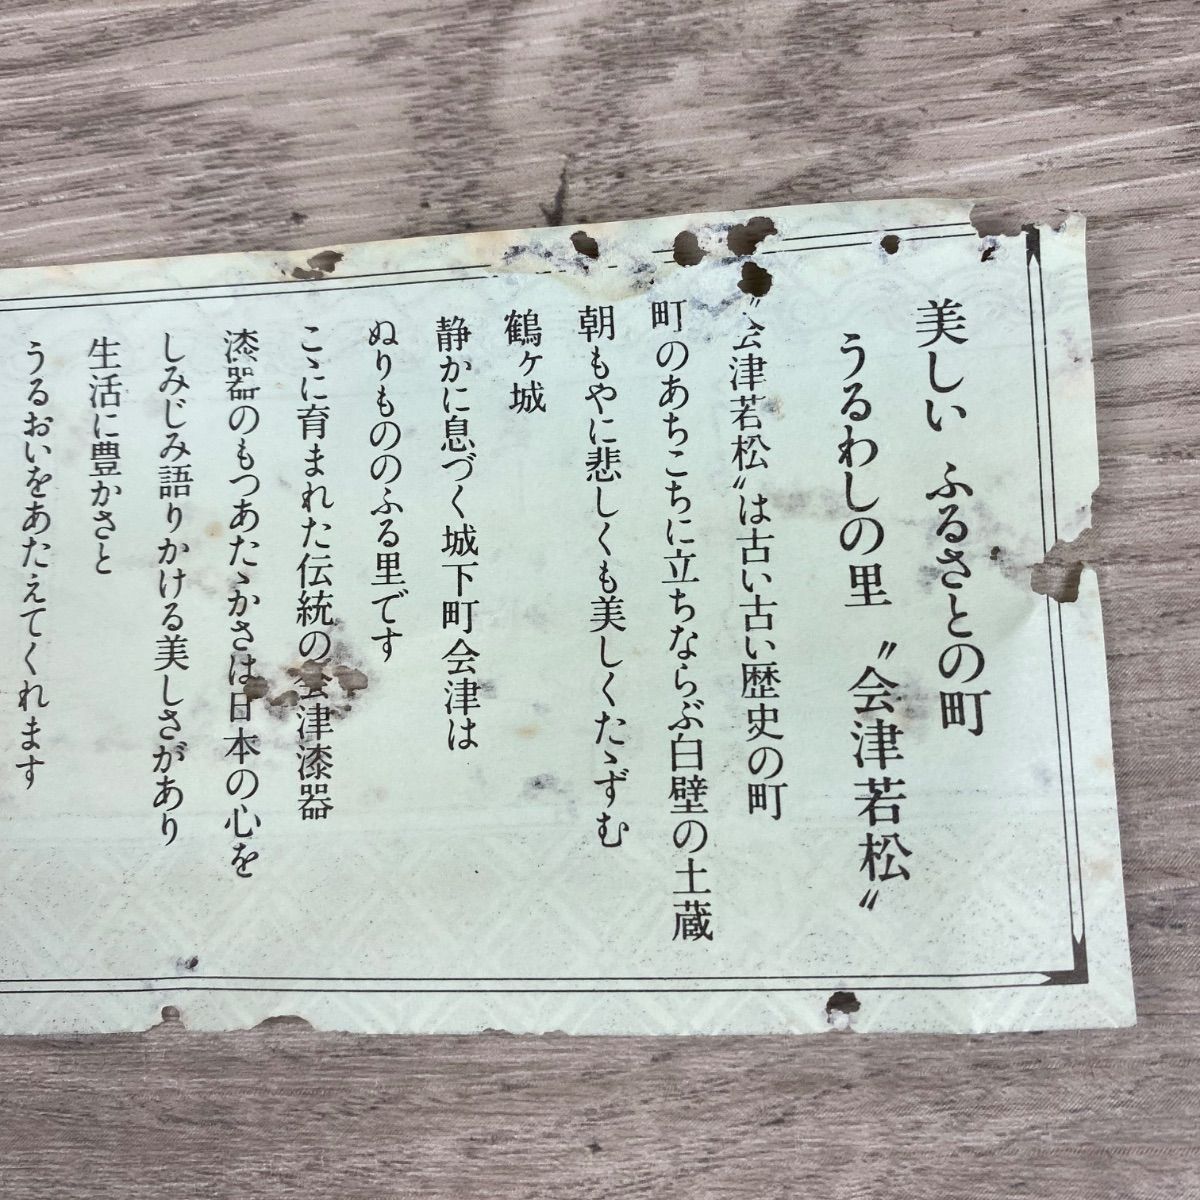 美しい ふるさとの町
うるわしの里 〝会津若松〟
〝会津若松〟は古い古い歴史の町
町のあちこちに立ちならぶ白壁の土蔵
朝もやに悲しくも美しくたゝずむ
鶴ヶ城
静かに息づく城下町会津は
ぬりもののふる里です
こゝに育まれた伝統の会津漆器
漆器のもつあたゝかさは日本の心を
しみじみ語りかける美しさがあり
生活に豊かさと
うるおいをあたえてくれます